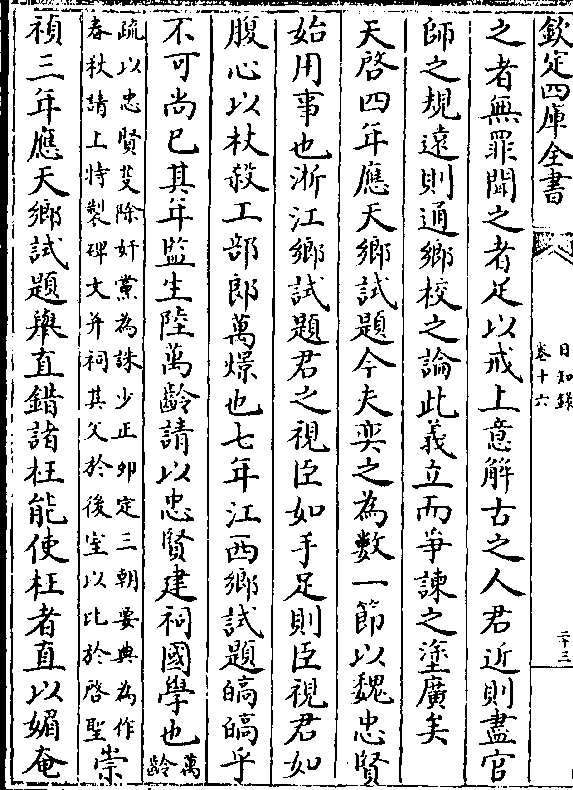 欽定四庫全書
日知錄
卷十六
二十三
之者無罪聞之者足以戒上意解古之人君近則盡官
師之規遠則通鄉校之論此義立而爭諫之塗廣矣
天啓四年應天鄉試題今夫奕之為數一節以魏忠賢
始用事也浙江鄉試題君之視臣如手足則臣視君如
腹心以杖殺工部郎萬燝也七年江西鄉試題皜皜乎
不可尚已其年監生陸萬齡請以忠賢建祠國學也萬齡
疏以忠賢芟除奸黨為誅少正卯定三朝要典為作
春秋請上特製碑文并祠其父於後室以比於啓聖崇
禎三年應天鄉試題舉直錯諸枉能使枉者直以媚奄